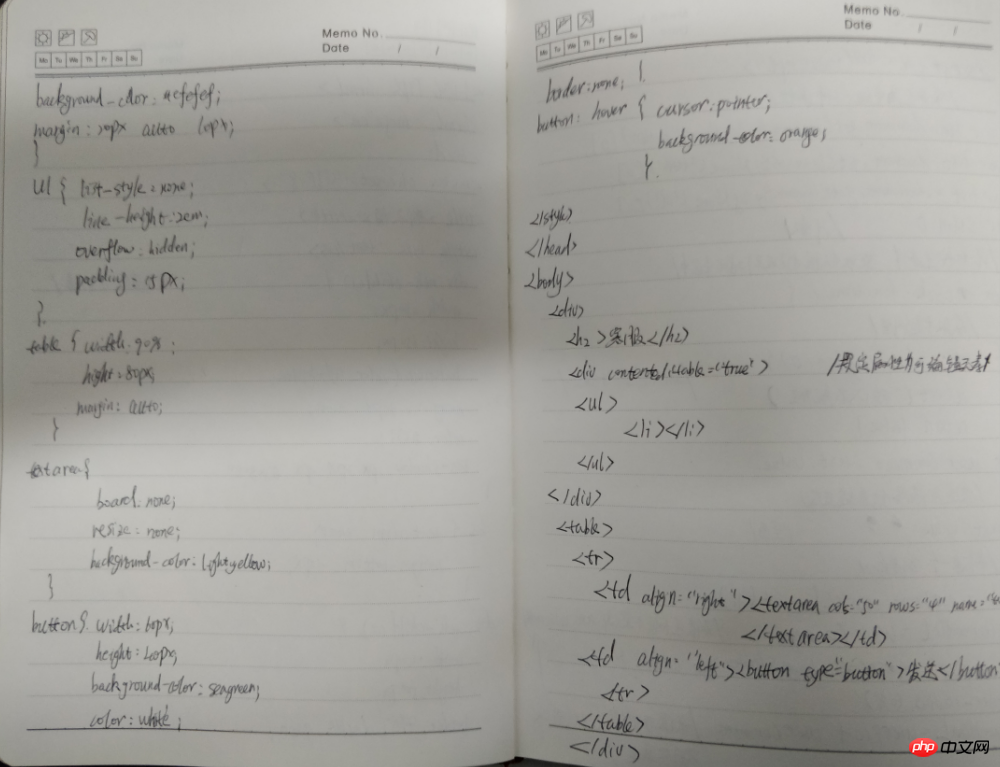 Memo No.
Date / /
Mo Tu We Th Fr Sa Su
background-color: #efefef;
margin: 10px auto 10px;
}
ul { list-style: none;
line-height: 2em;
overflow: hidden;
padding: 15px;
}.
table { width: 90%;
hight: 80px;
margin: auto;
}
textarea{
board: none;
resize: none;
background-color: lightyellow;
}
button{ width:
height:
background-color: seagreen;
color: white;
Memo No.
Date / /
Mo Tu We Th Fr Sa Su
border: none; }.
button: hover { cursor: pointer;
background-color: orange;
}.
</style>
</head>
<body>
<div>
<h2>客服</h2>
<div contenteditable="true">
<ul>
<li></li>
</ul>
</div>
<table>
<tr>
<td align="right"><textarea cols="50" rows="4" name=
</textarea></td>
<td align="left"><button type="button">发送</button
<tr>
</table>
</div>
php 中文网